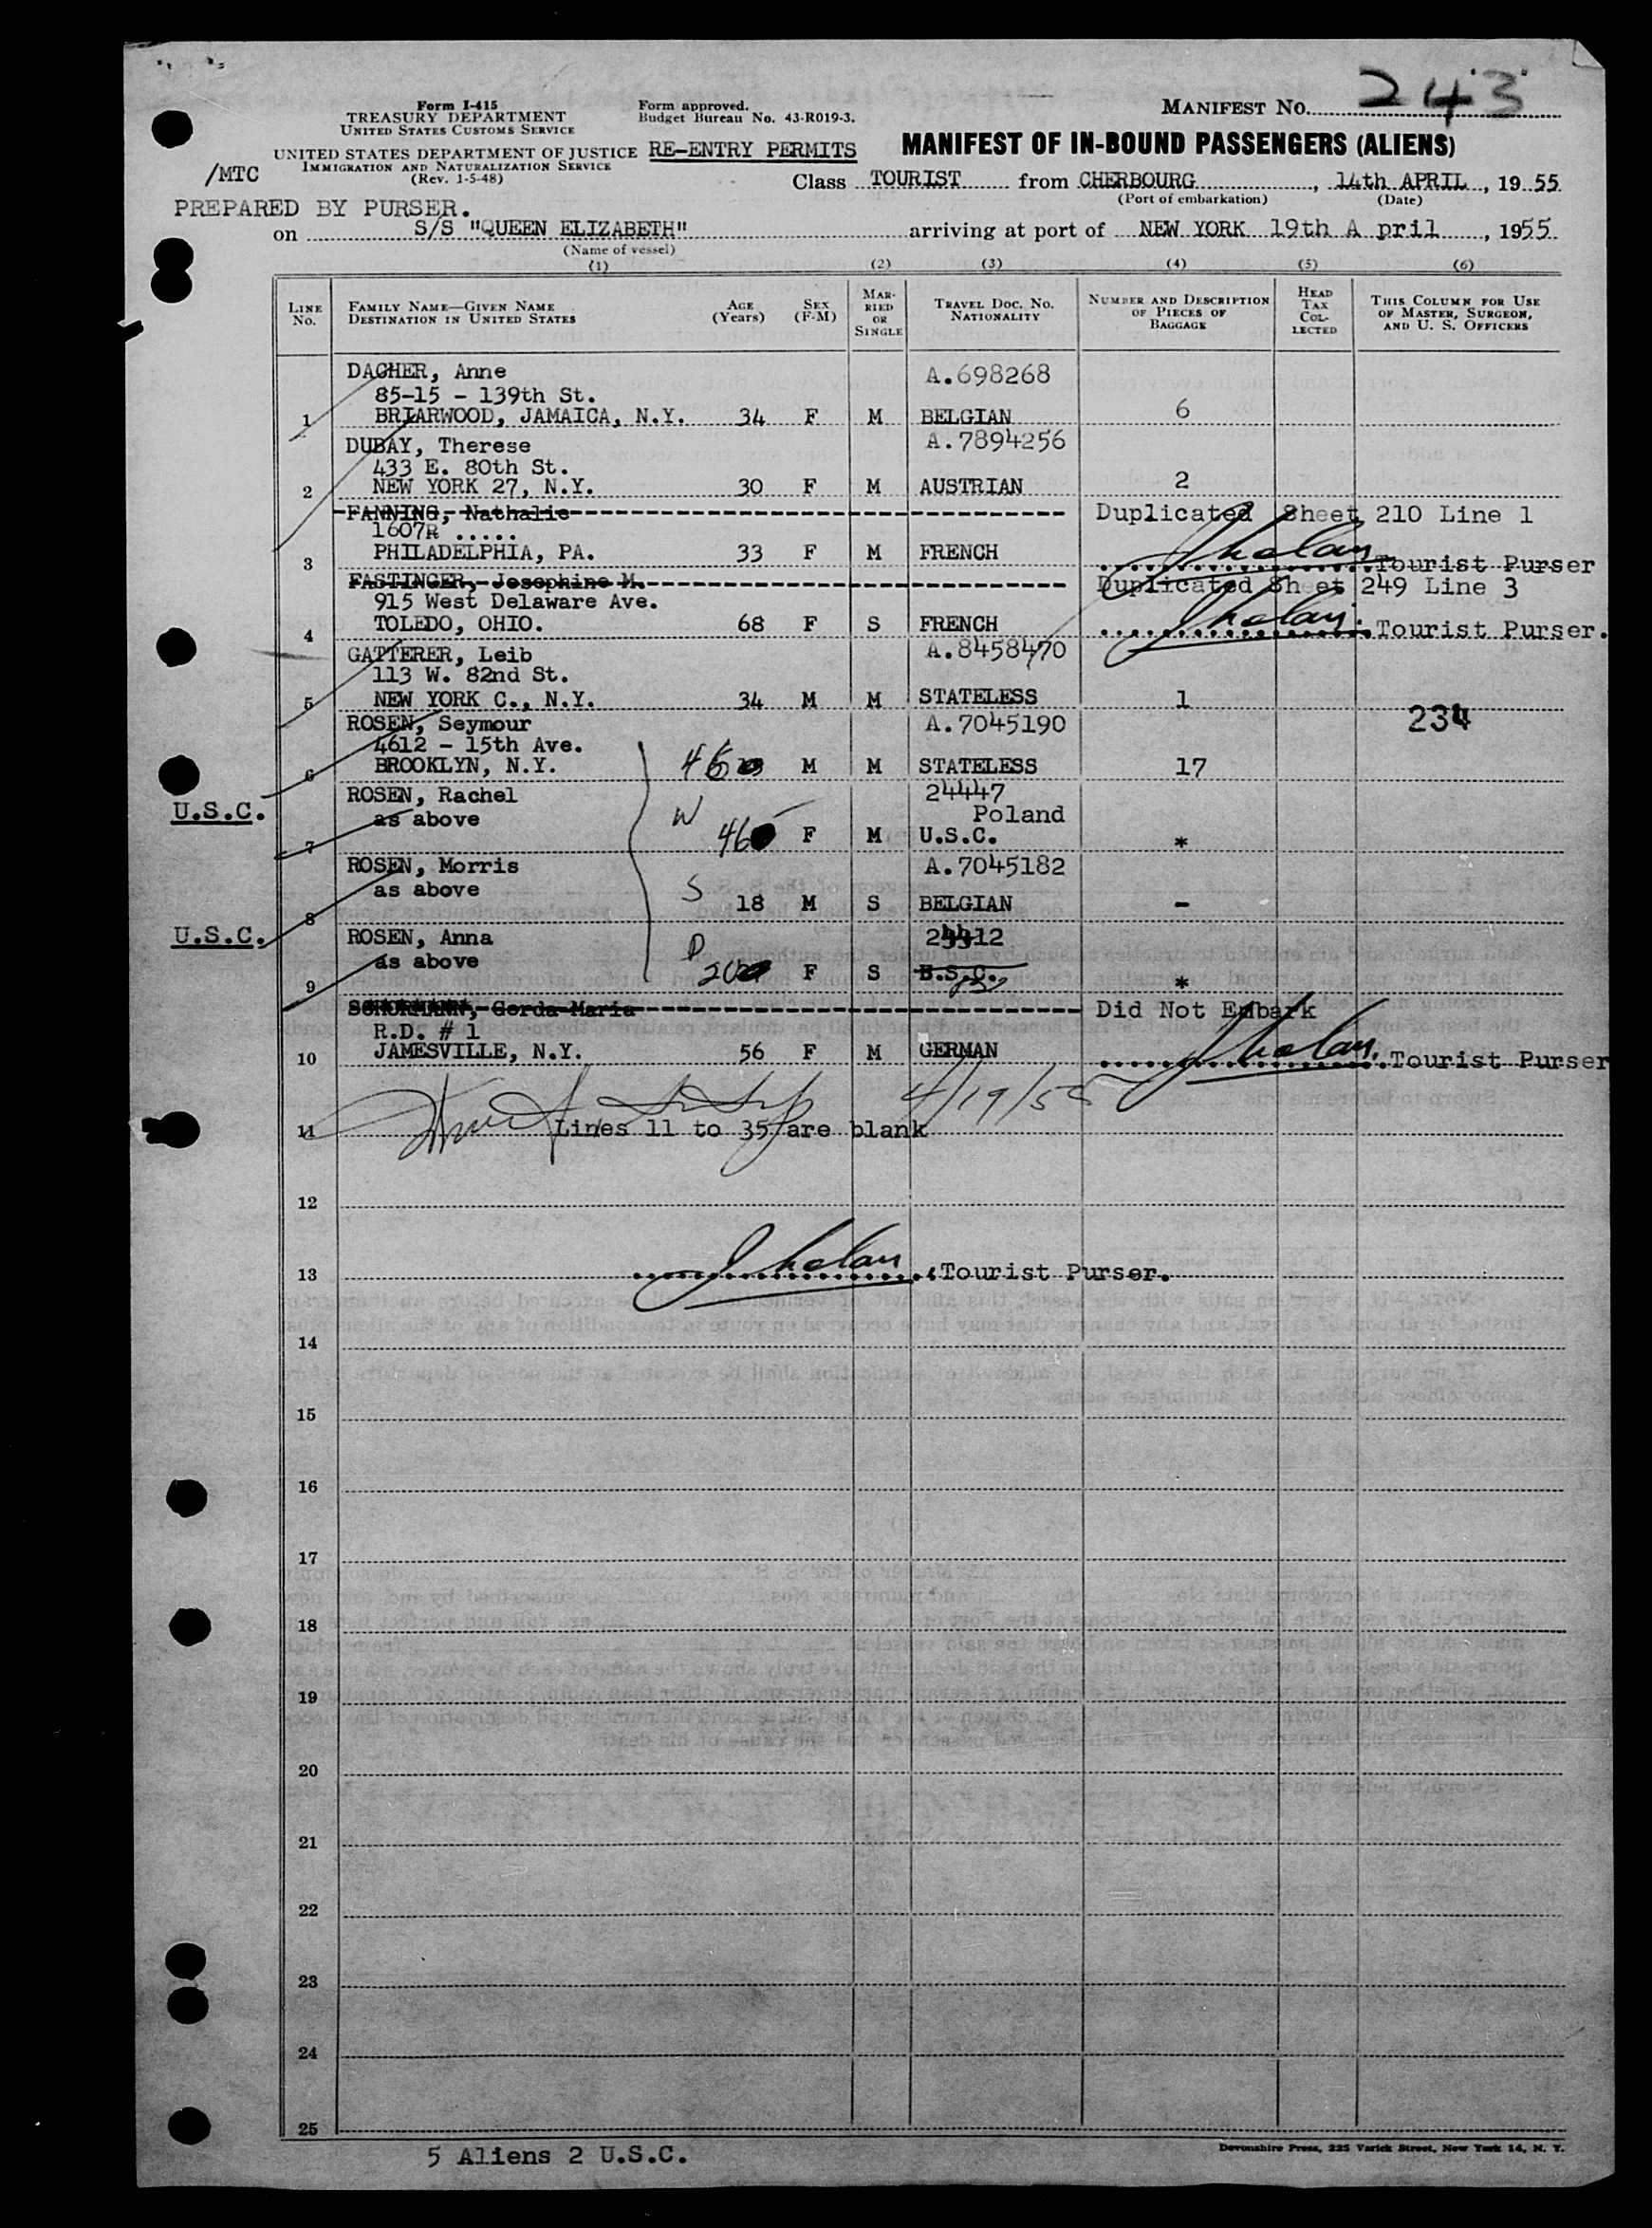 MANIFEST NO. 243
Form I-415
TREASURY DEPARTMENT
UNITED STATES CUSTOMS SERVICE
Form approved.
Budget Bureau No. 43-R019-3.
UNITED STATES DEPARTMENT OF JUSTICE
IMMIGRATION AND NATURALIZATION SERVICE
(Rev. 1-5-48)
RE-ENTRY PERMITS
MANIFEST OF IN-BOUND PASSENGERS (ALIENS)
/MTC
Class TOURIST from CHERBOURG, 14th APRIL, 1955
(Port of embarkation) (Date)
PREPARED BY PURSER.
on S/S "QUEEN ELIZABETH" arriving at port of NEW YORK 19th A pril, 1955.
(Name of vessel)
(1) (2) (3) (4) (5) (6)
LINE No. FAMILY NAME—GIVEN NAME DESTINATION IN UNITED STATES AGE (Years) SEX (F-M) MARRIED OR SINGLE TRAVEL DOC. NO. NATIONALITY NUMBER AND DESCRIPTION OF PIECES OF BAGGAGE HEAD TAX COLLECTED THIS COLUMN FOR USE OF MASTER, SURGEON, AND U. S. OFFICERS
DAGHER, Anne A.698268
85-15 - 139th St.
1 BRIARWOOD, JAMAICA, N.Y. 34 F M BELGIAN 6
DUBAY, Therese A.7894256
433 E. 80th St.
2 NEW YORK 27, N.Y. 30 F M AUSTRIAN 2
FANNING, Nathalie Duplicated Sheet 210 Line 1
1607R .....
3 PHILADELPHIA, PA. 33 F M FRENCH Tourist Purser
FASTINGER, Josephine M. Duplicated Sheet 249 Line 3
915 West Delaware Ave.
4 TOLEDO, OHIO. 68 F S FRENCH Tourist Purser.
GATTERER, Leib A.8458470
113 W. 82nd St.
5 NEW YORK C., N.Y. 34 M M STATELESS 1
ROSEN, Seymour A.7045190 234
4612 - 15th Ave.
6 BROOKLYN, N.Y. 46 M M STATELESS 17
ROSEN, Rachel 24447
U.S.C. as above W Poland
7 46 F M U.S.C. *
ROSEN, Morris A.7045182
as above S
8 18 M S BELGIAN -
U.S.C. ROSEN, Anna D
as above
9 20 F S U.S.C. *
Gerda Maria Did Not Embark
R.D. # 1
10 JAMESVILLE, N.Y. 56 F M GERMAN Tourist Purser
4/19/55
11 Lines 11 to 35 are blank
12
13 Tourist Purser.
14
15
16
17
18
19
20
21
22
23
24
25
5 Aliens 2 U.S.C.
Devonshire Press, 225 Varick Street, New York 14, N. Y.